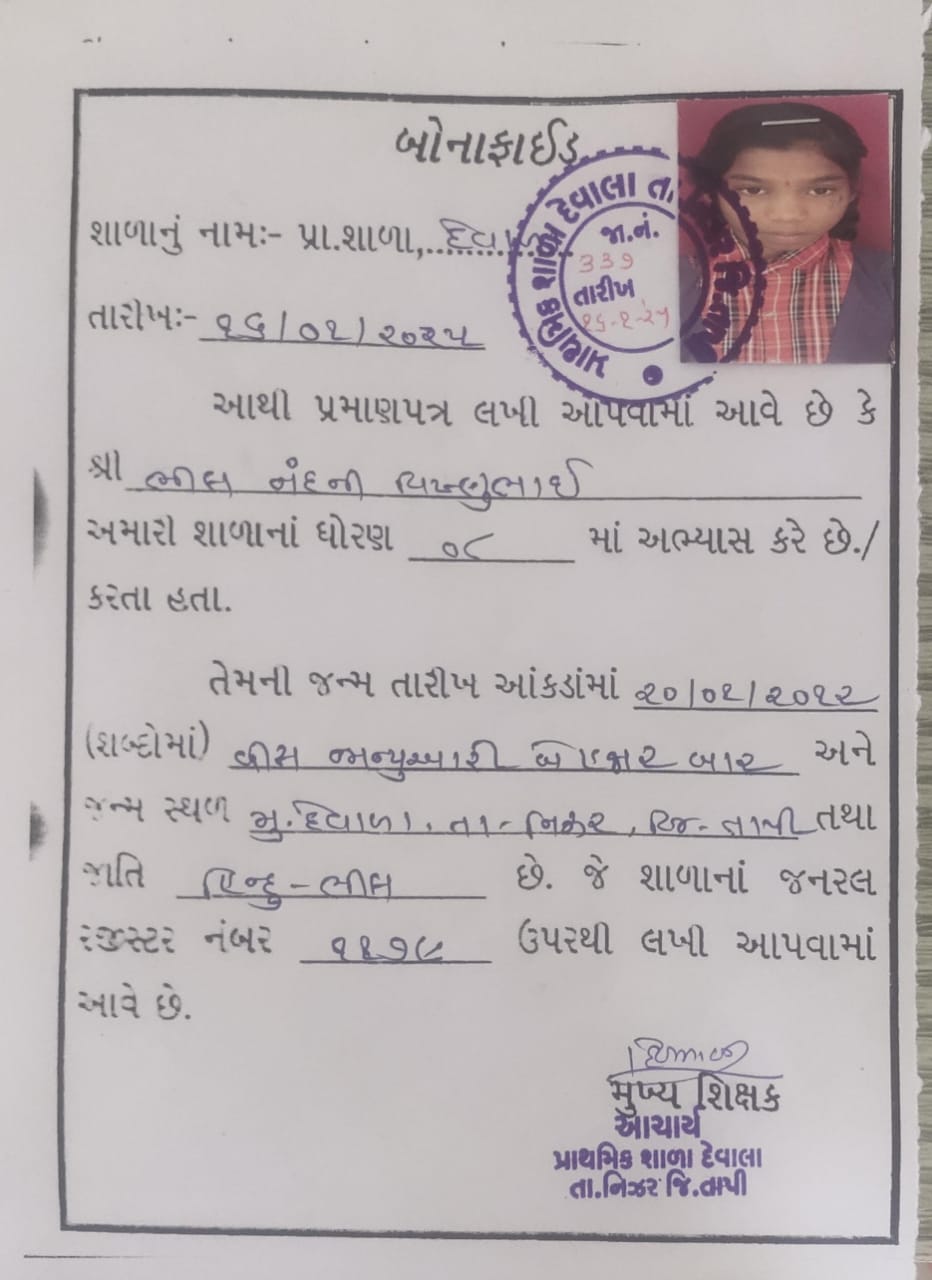 બોનાફાઈડ
શાળાનું નામઃ- પ્રા.શાળા,..દેવાળા
તારીખઃ- ૧૬/૦૧/૨૦૨૫
પ્રાથમિક શાળા દેવાલા તા.
જા.નં.
૩૩૭
તારીખ
૧૬-૧-૨૫
આથી પ્રમાણપત્ર લખી આપવામાં આવે છે કે
શ્રી ભીલ નંદની વિષ્ણુભાઈ
અમારી શાળાનાં ધોરણ ૦૮ માં અભ્યાસ કરે છે./
કરતા હતા.
તેમની જન્મ તારીખ આંકડાંમાં ૨૦/૦૧/૨૦૧૨
(શબ્દોમાં) વીસ જાન્યુઆરી બે હજાર બાર અને
જન્મ સ્થળ મુ.દેવાળા. તા-નિઝર, જિ-તાપી તથા
જાતિ હિન્દુ-ભીલ છે. જે શાળાનાં જનરલ
રજીસ્ટર નંબર ૧૪૭૯ ઉપરથી લખી આપવામાં
આવે છે.
મુખ્ય શિક્ષક
આચાર્ય
પ્રાથમિક શાળા દેવાલા
તા.નિઝર જિ.તાપી